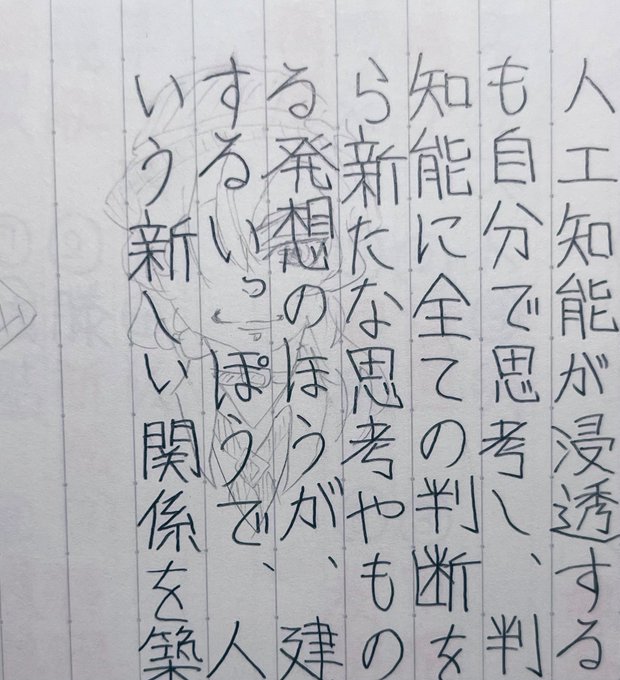 人工知能が浸透する
も自分で思考し、判
知能に全ての判断を
ら新たな思考やもの
る発想のほうが、建
するいっぽうで、人
いう新しい関係を築